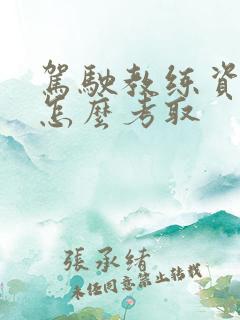 駕駛教練資
怎麼考取
張承緒
未经同意禁止转载